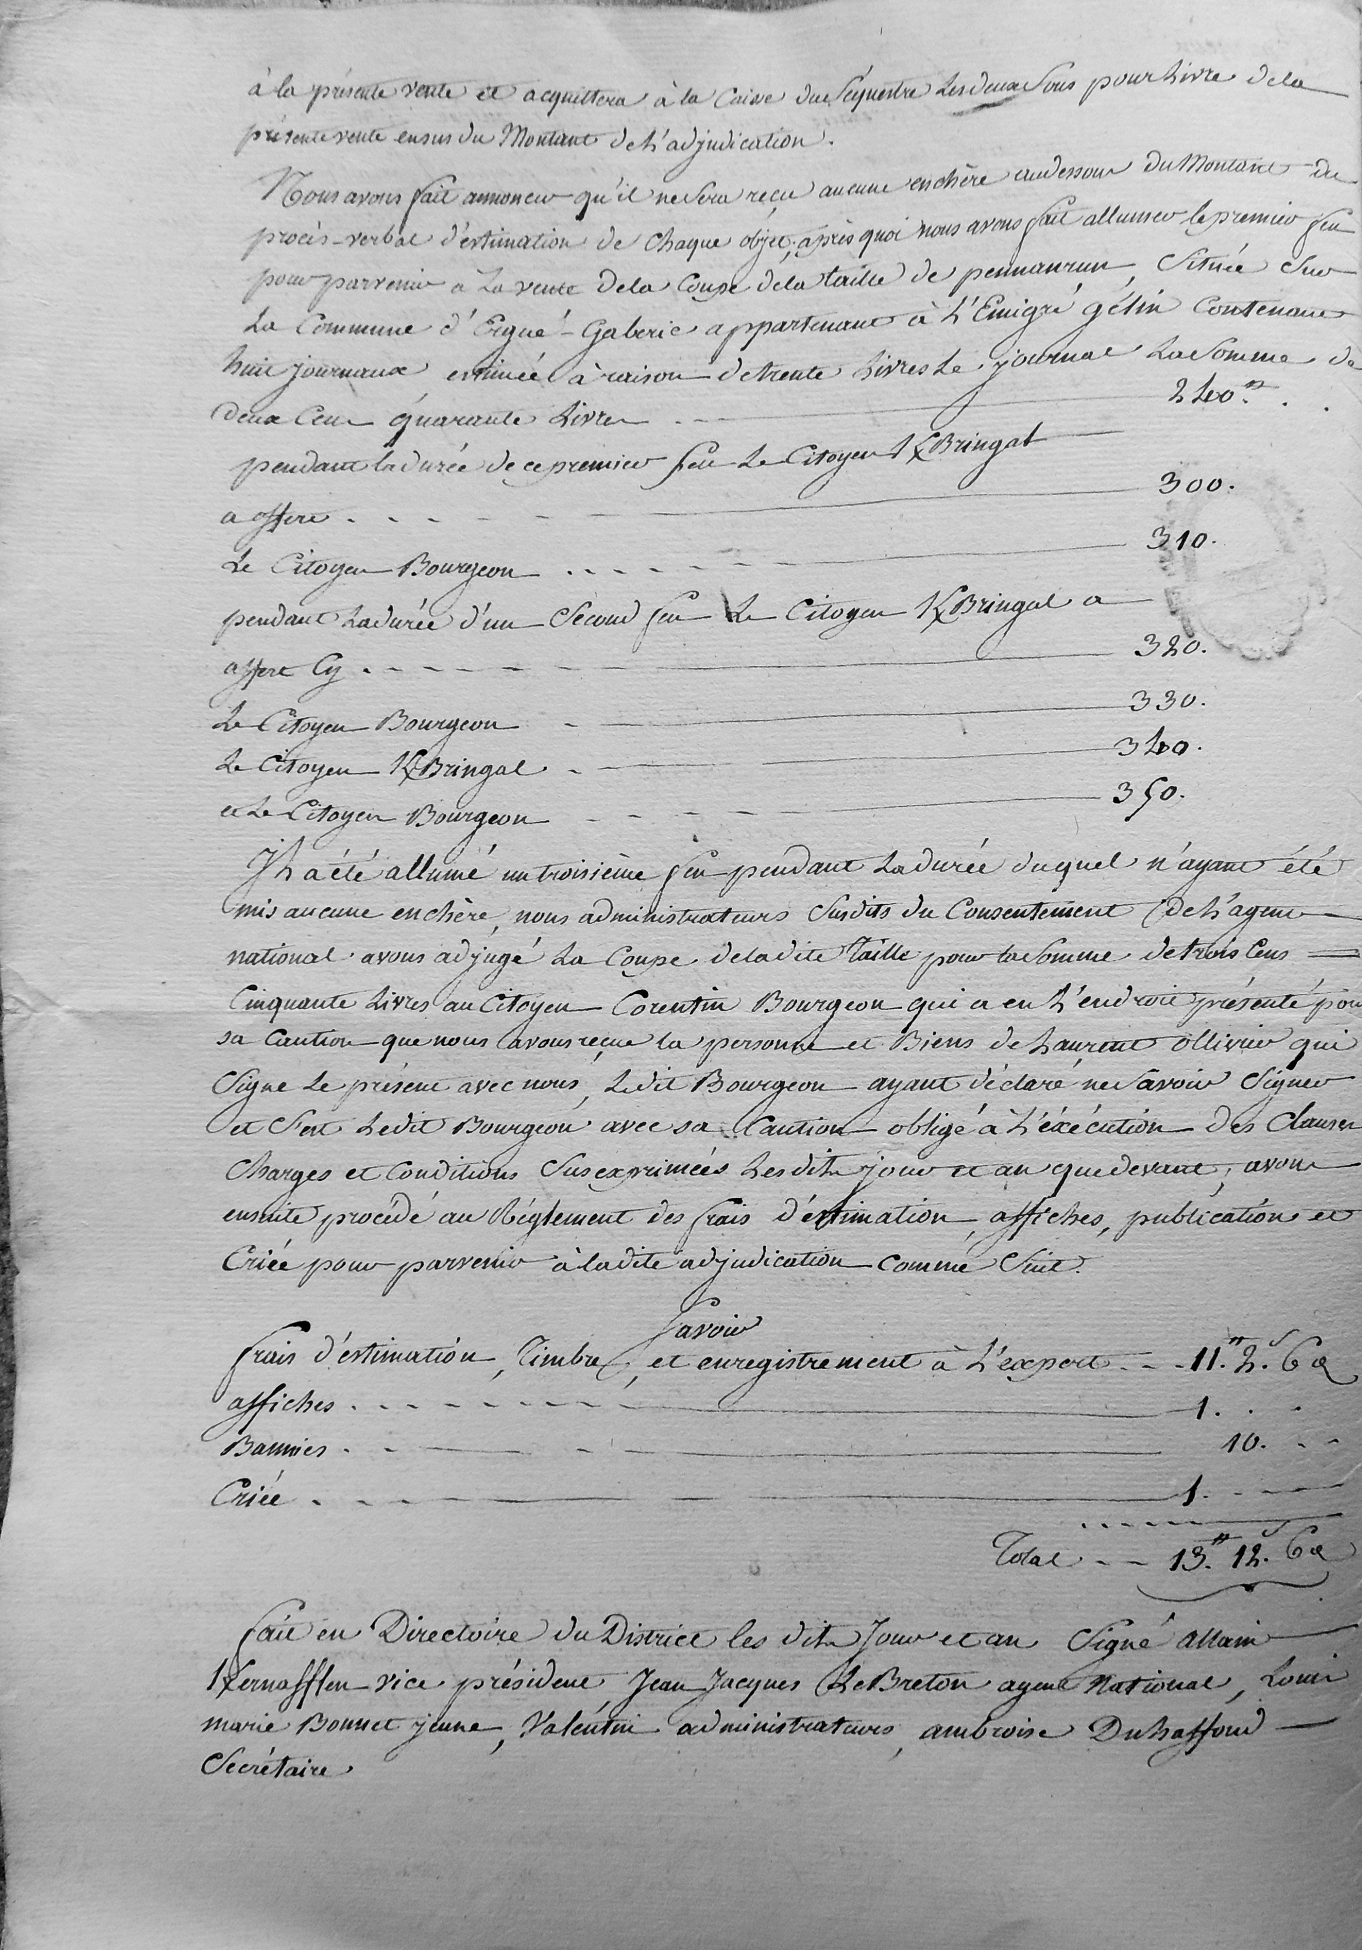 à la présente vente et acquittera à la Caisse du Séquestre Les deux Sous pour Livre de la
présente vente en sus du Montant de L'adjudication.
Nous avons fait annoncer qu'il ne Sera reçu aucune enchère au dessous du Montant du
procès-verbal d'estimation de Chaque objet, après quoi nous avons fait allumer le premier feu
pour parvenir à La vente de la Coupe de la taille de pennanrun, Située Sur
La Commune d'Ergué-Gaberic appartenant à L'Emigré gélin Contenant
huit journaux estimée à raison de trente Livres Le journal La Somme de
deux Cent quarante Livres - - 240.# . .
pendant la durée de ce premier feu Le Citoyen KBringal
a offert . - - - 300.
Le Citoyen Bourgeon . - - - 310.
pendant La durée d'un Second feu Le Citoyen KBringal a
offert Cy . - - - 320.
Le Citoyen Bourgeon - 330.
Le Citoyen KBringal - 340.
et Le Citoyen Bourgeon - - - 350.
Il a été allumé un troisième feu pendant La durée duquel n'ayant été
mis aucune enchère, nous administrateurs Susdits du Consentement de L'agent
national avons adjugé La Coupe de la dite Taille pour la Somme de trois Cens =
Cinquante Livres au Citoyen Corentin Bourgeon qui a en L'endroit présenté pour
sa Caution que nous avons reçue la personne et Biens de Laurent ollivier qui
Signe Le présent avec nous, Ledit Bourgeon ayant déclaré ne Savoir Signer
et S'est Ledit Bourgeon avec sa Caution obligé à L'éxécution des Clauses
Charges et Conditions Susexprimées Lesdits jour et an que devant, avons
ensuite procédé au Réglement des frais d'estimation, affiches, publication et
Criée pour parvenir à ladite adjudication Comme Suit.
Savoir
frais d'estimation, Timbre, et enregistrement à L'expert - - 11.# 2.s 6 d
affiches . - - - 1. . .
Bannies . - - 10. - -
Criée . - - - 1. - -
Total - - 13.# 12.s 6 d
fait en Directoire du District les dits Jour et an Signé allain
Kernafflen vice président, Jean Jacques Le Breton agent National, Louis
marie Bonnet jeune, Valentin administrateurs, ambroise Duhaffond
Secrétaire.